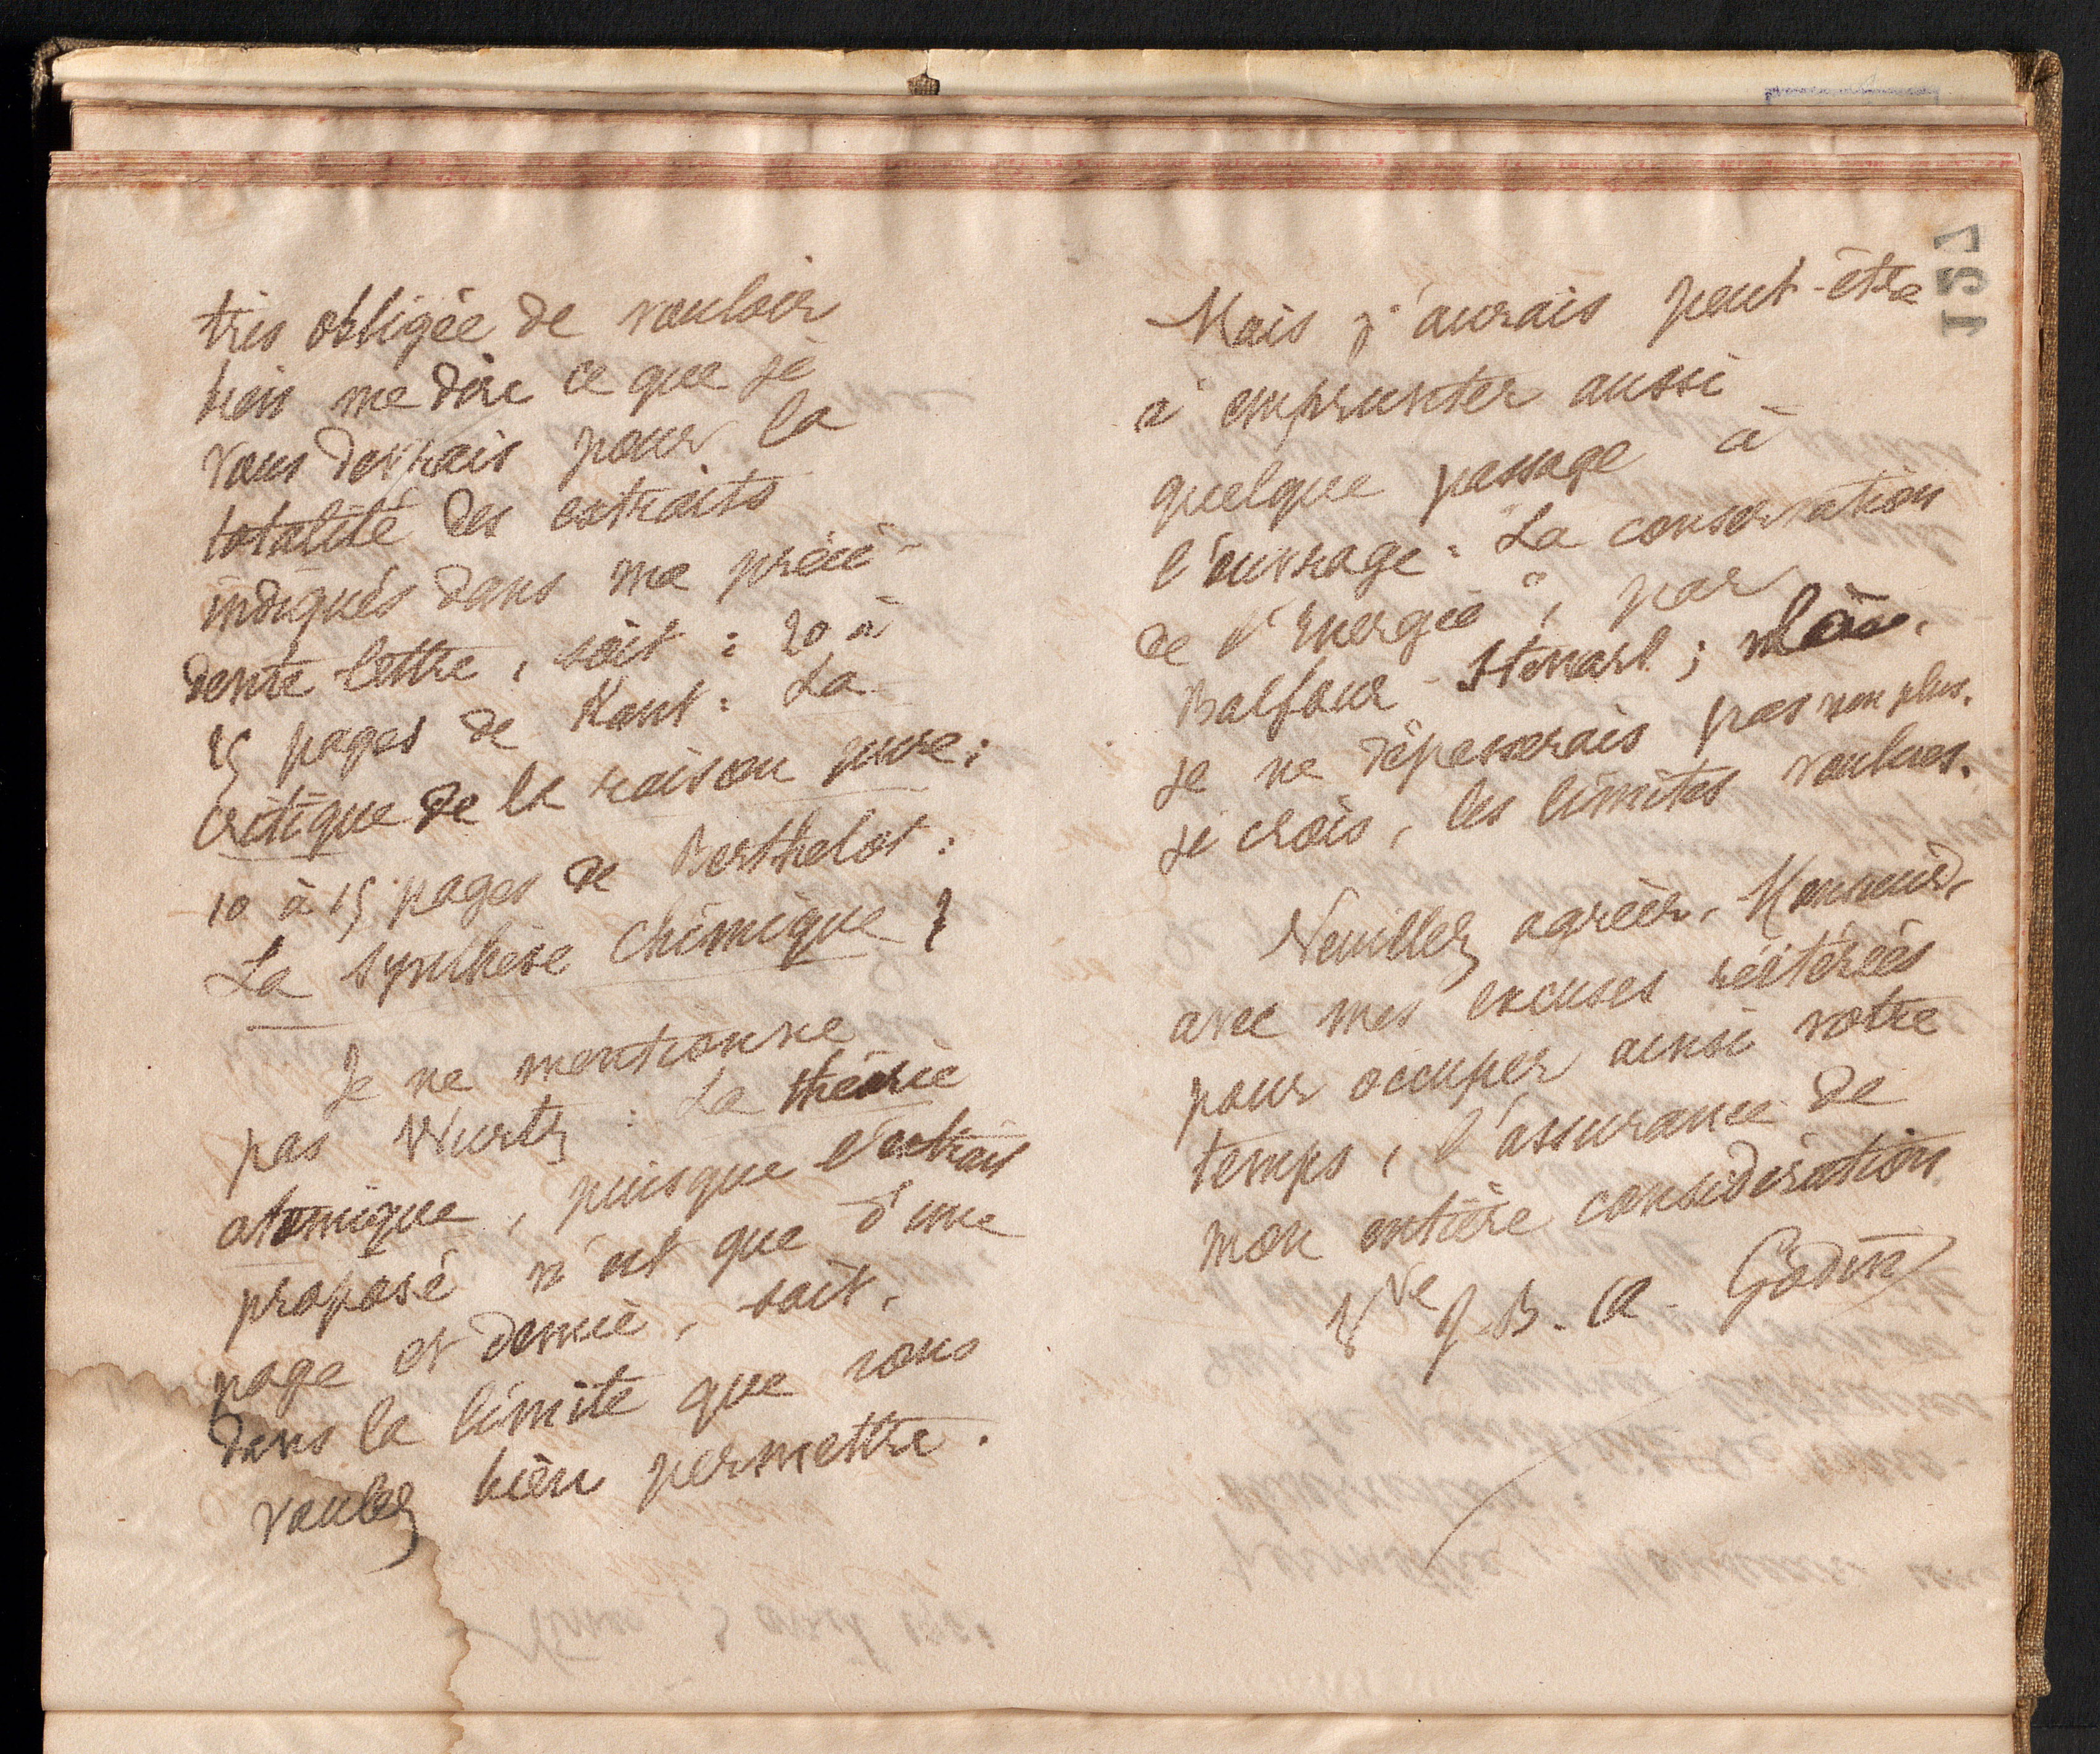 très obligée de vouloir
bien me dire ce que je
vous devrais pour la
totalité des extraits
indiqués dans ma précé-
dente lettre, soit : 20 à
25 pages de Kant : La
critique de la raison pure ;
10 à 15 pages de Berthelot :
La synthèse chimique ?
Je ne mentionne
pas Wurtz : La théorie
atomique, puisque l'extrait
proposé n'est que d'une
page et demie, soit,
dans la limite que vous
voulez bien permettre.
157
Mais j'aurais peut-être
à emprunter aussi
quelque passage à
l'ouvrage : "La conservation
de l'Energie", par
Balfour-Stewart ;
je ne dépasserais pas non plus,
je crois, les limites voulues.
Veuillez agréer, Monsieur,
avec mes excuses réitérées
pour occuper ainsi votre
temps, l'assurance de
mon entière considération
Vve J. B. A. Godin